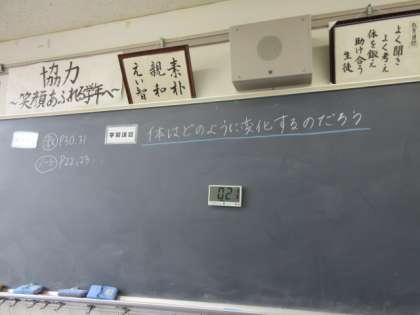 協力
～笑顔あふれる学年へ～
素朴
親和
えい智
教育目標
よく聞き
よく考え
体を鍛え
助け合う
生徒
教P30,31
ノートP22,23
学習課題
体はどのように変化するのだろう
02